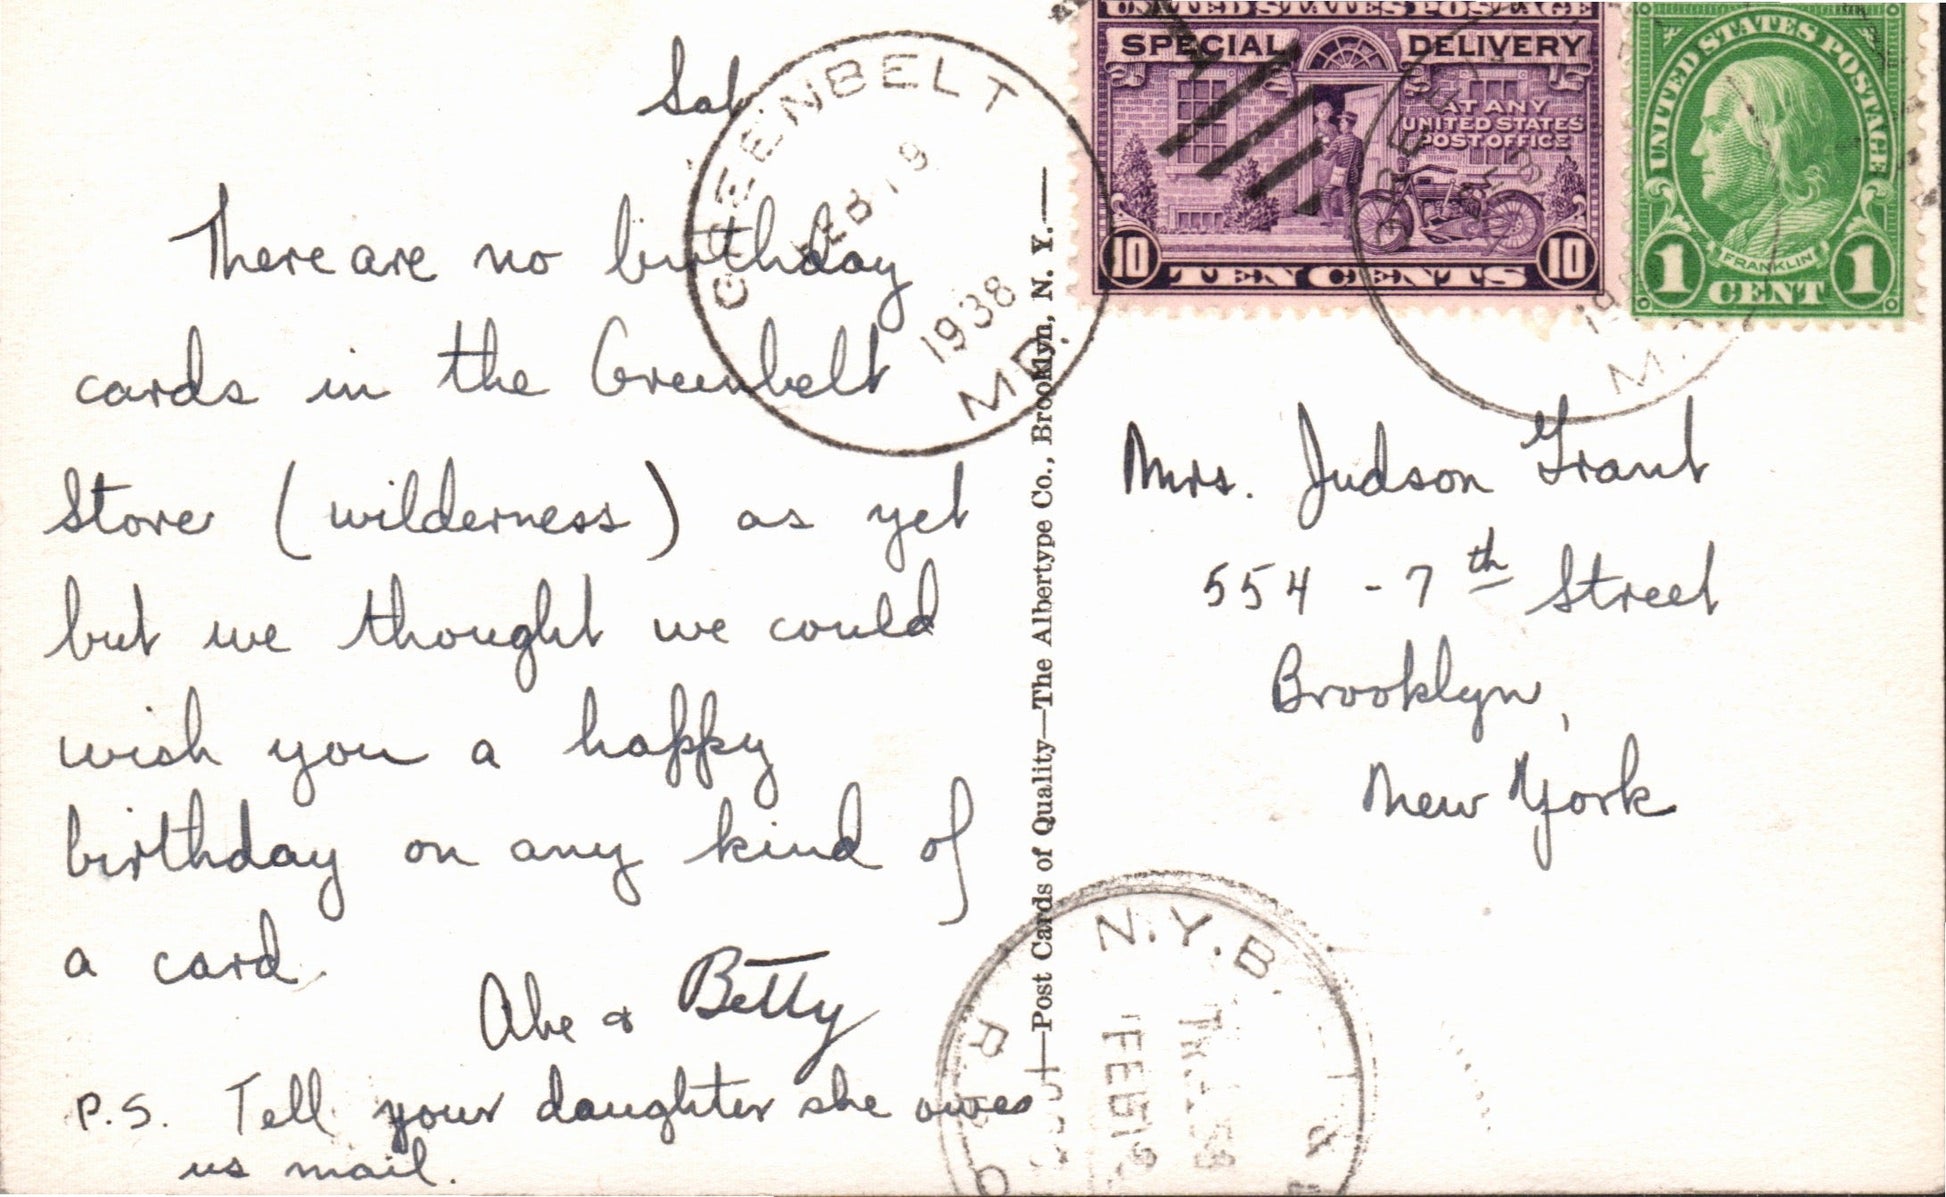 Sat
There are no birthday
cards in the Greenbelt
Store (wilderness) as yet
but we thought we could
wish you a happy
birthday on any kind of
a card.
Abe & Betty
P.S. Tell your daughter she owes
us mail.
GREENBELT
FEB 19
1938
MD.
—Post Cards of Quality—The Albertype Co., Brooklyn, N. Y.—
UNITED STATES POSTAGE
SPECIAL DELIVERY
AT ANY
UNITED STATES
POST OFFICE
10 TEN CENTS 10
UNITED STATES POSTAGE
FRANKLIN
1 CENT 1
Mrs. Judson Grant
554 - 7th Street
Brooklyn,
New York
N.Y.B.
R.P.O.
TR
FEB 19